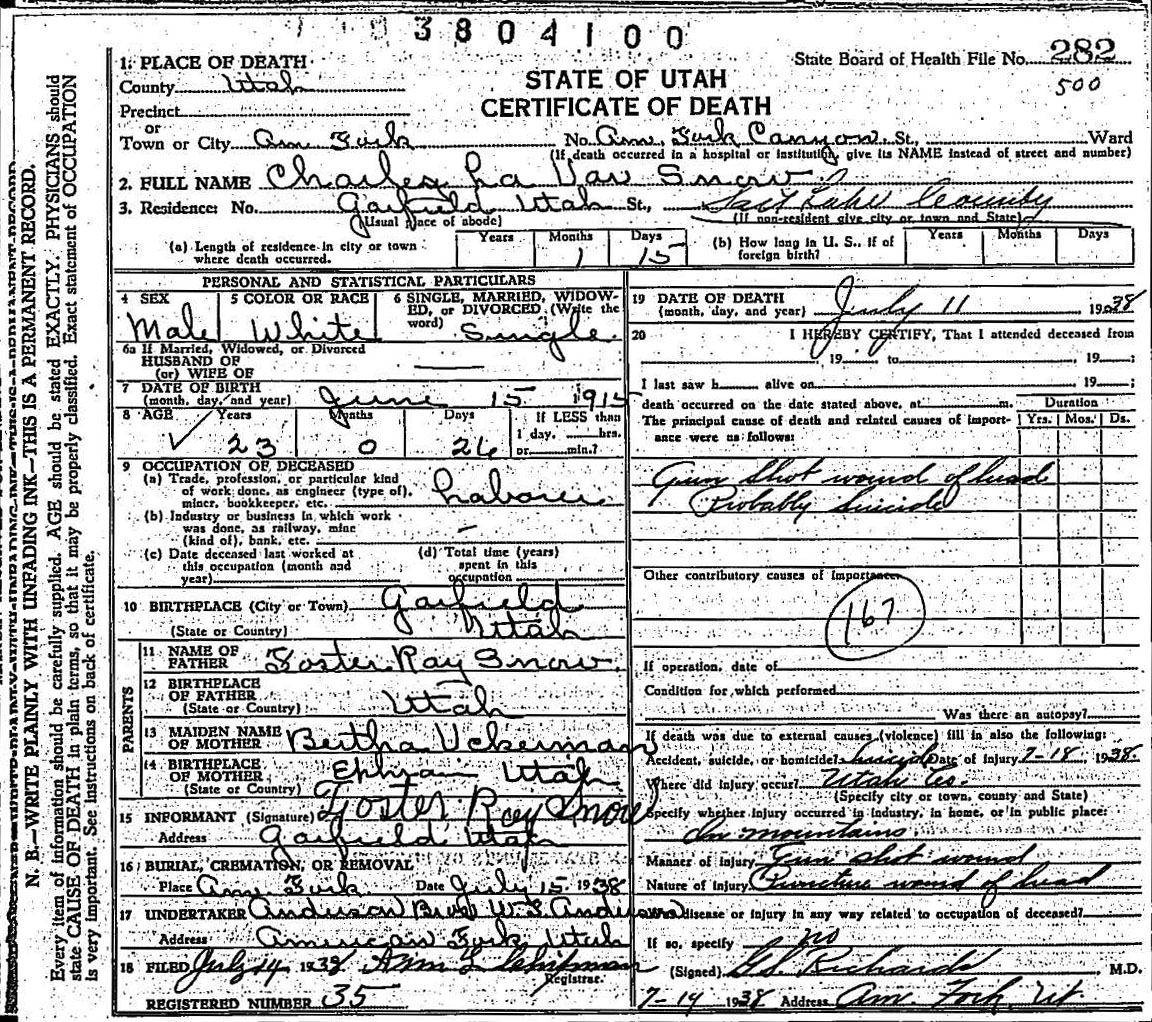 3804100
State Board of Health File No. 282
500
1. PLACE OF DEATH
STATE OF UTAH
CERTIFICATE OF DEATH
County Utah
Precinct
or
Town or City Am Fork No. Am. Fork Canyon St., Ward
(If death occurred in a hospital or institution, give its NAME instead of street and number)
2. FULL NAME Charles La Var Snow
3. Residence: No. Garfield Utah St., Salt Lake County
(Usual place of abode) (If non-resident give city or town and State)
(a) Length of residence in city or town where death occurred. Years Months 1 Days 15
(b) How long in U. S., if of foreign birth? Years Months Days
PERSONAL AND STATISTICAL PARTICULARS
4 SEX Male
5 COLOR OR RACE White
6 SINGLE, MARRIED, WIDOWED, or DIVORCED (Write the word) Single
6a If Married, Widowed, or Divorced
HUSBAND OF
(or) WIFE OF —
7 DATE OF BIRTH
(month, day, and year) June 15 1915
8 AGE Years 23 Months 0 Days 26 If LESS than 1 day, hrs. or min.?
9 OCCUPATION OF DECEASED
(a) Trade, profession, or particular kind of work done, as engineer (type of), miner, bookkeeper, etc. Laborer
(b) Industry or business in which work was done, as railway, mine (kind of), bank, etc. –
(c) Date deceased last worked at this occupation (month and year)
(d) Total time (years) spent in this occupation
10 BIRTHPLACE (City or Town) Garfield
(State or Country) Utah
PARENTS
11 NAME OF FATHER Foster Ray Snow
12 BIRTHPLACE OF FATHER (State or Country) Utah
13 MAIDEN NAME OF MOTHER Bertha Uckerman
14 BIRTHPLACE OF MOTHER (State or Country) Ephraim Utah
15 INFORMANT (Signature) Foster Ray Snow
Address Garfield Utah
16 BURIAL, CREMATION, OR REMOVAL
Place Am. Fork Date July 15 1938
17 UNDERTAKER Anderson Bros W.S. Anderson
Address American Fork, Utah
18 FILED July 14 1938 Chipman
Registrar.
REGISTERED NUMBER 35
19 DATE OF DEATH
(month, day, and year) July 11 1938
20 I HEREBY CERTIFY, That I attended deceased from
, 19 to , 19 ;
I last saw h alive on , 19 ;
death occurred on the date stated above, at m. Duration
The principal cause of death and related causes of importance were as follows: Yrs. Mos. Ds.
Gun shot wound of head
Probably Suicide
Other contributory causes of importance.
167
If operation, date of
Condition for which performed
Was there an autopsy?
If death was due to external causes (violence) fill in also the following:
Accident, suicide, or homicide? Suicide Date of Injury 7-18- 1938.
Where did injury occur? Utah Co.
(Specify city or town, county and State)
Specify whether injury occurred in industry, in home, or in public place:
In mountains
Manner of injury Gun shot wound
Nature of Injury Puncture wound of head
Was disease or injury in any way related to occupation of deceased?
If so, specify no
(Signed) G.S. Richards M.D.
7-14 1938 Address Am. Fork, Ut
N. B.—WRITE PLAINLY WITH UNFADING INK—THIS IS A PERMANENT RECORD.
Every item of information should be carefully supplied. AGE should be stated EXACTLY. PHYSICIANS should
state CAUSE OF DEATH in plain terms, so that it may be properly classified. Exact statement of OCCUPATION
is very important. See instructions on back of certificate.